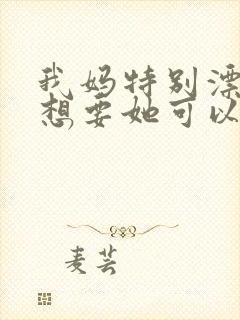 我妈特别漂
想要她可以
麦芸